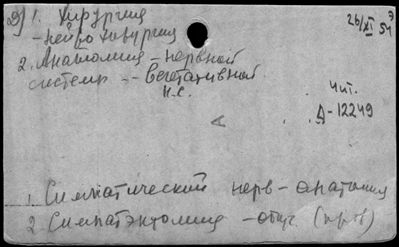 1. Хирургия
26/XI 54
- нейрохирургия
2. Анатомия - нервной
системы -- Вегетативной
н.с.
Чит.
Д-12249
1. Симпатический нерв - анатомия
2. Симпатэктомия - общ.